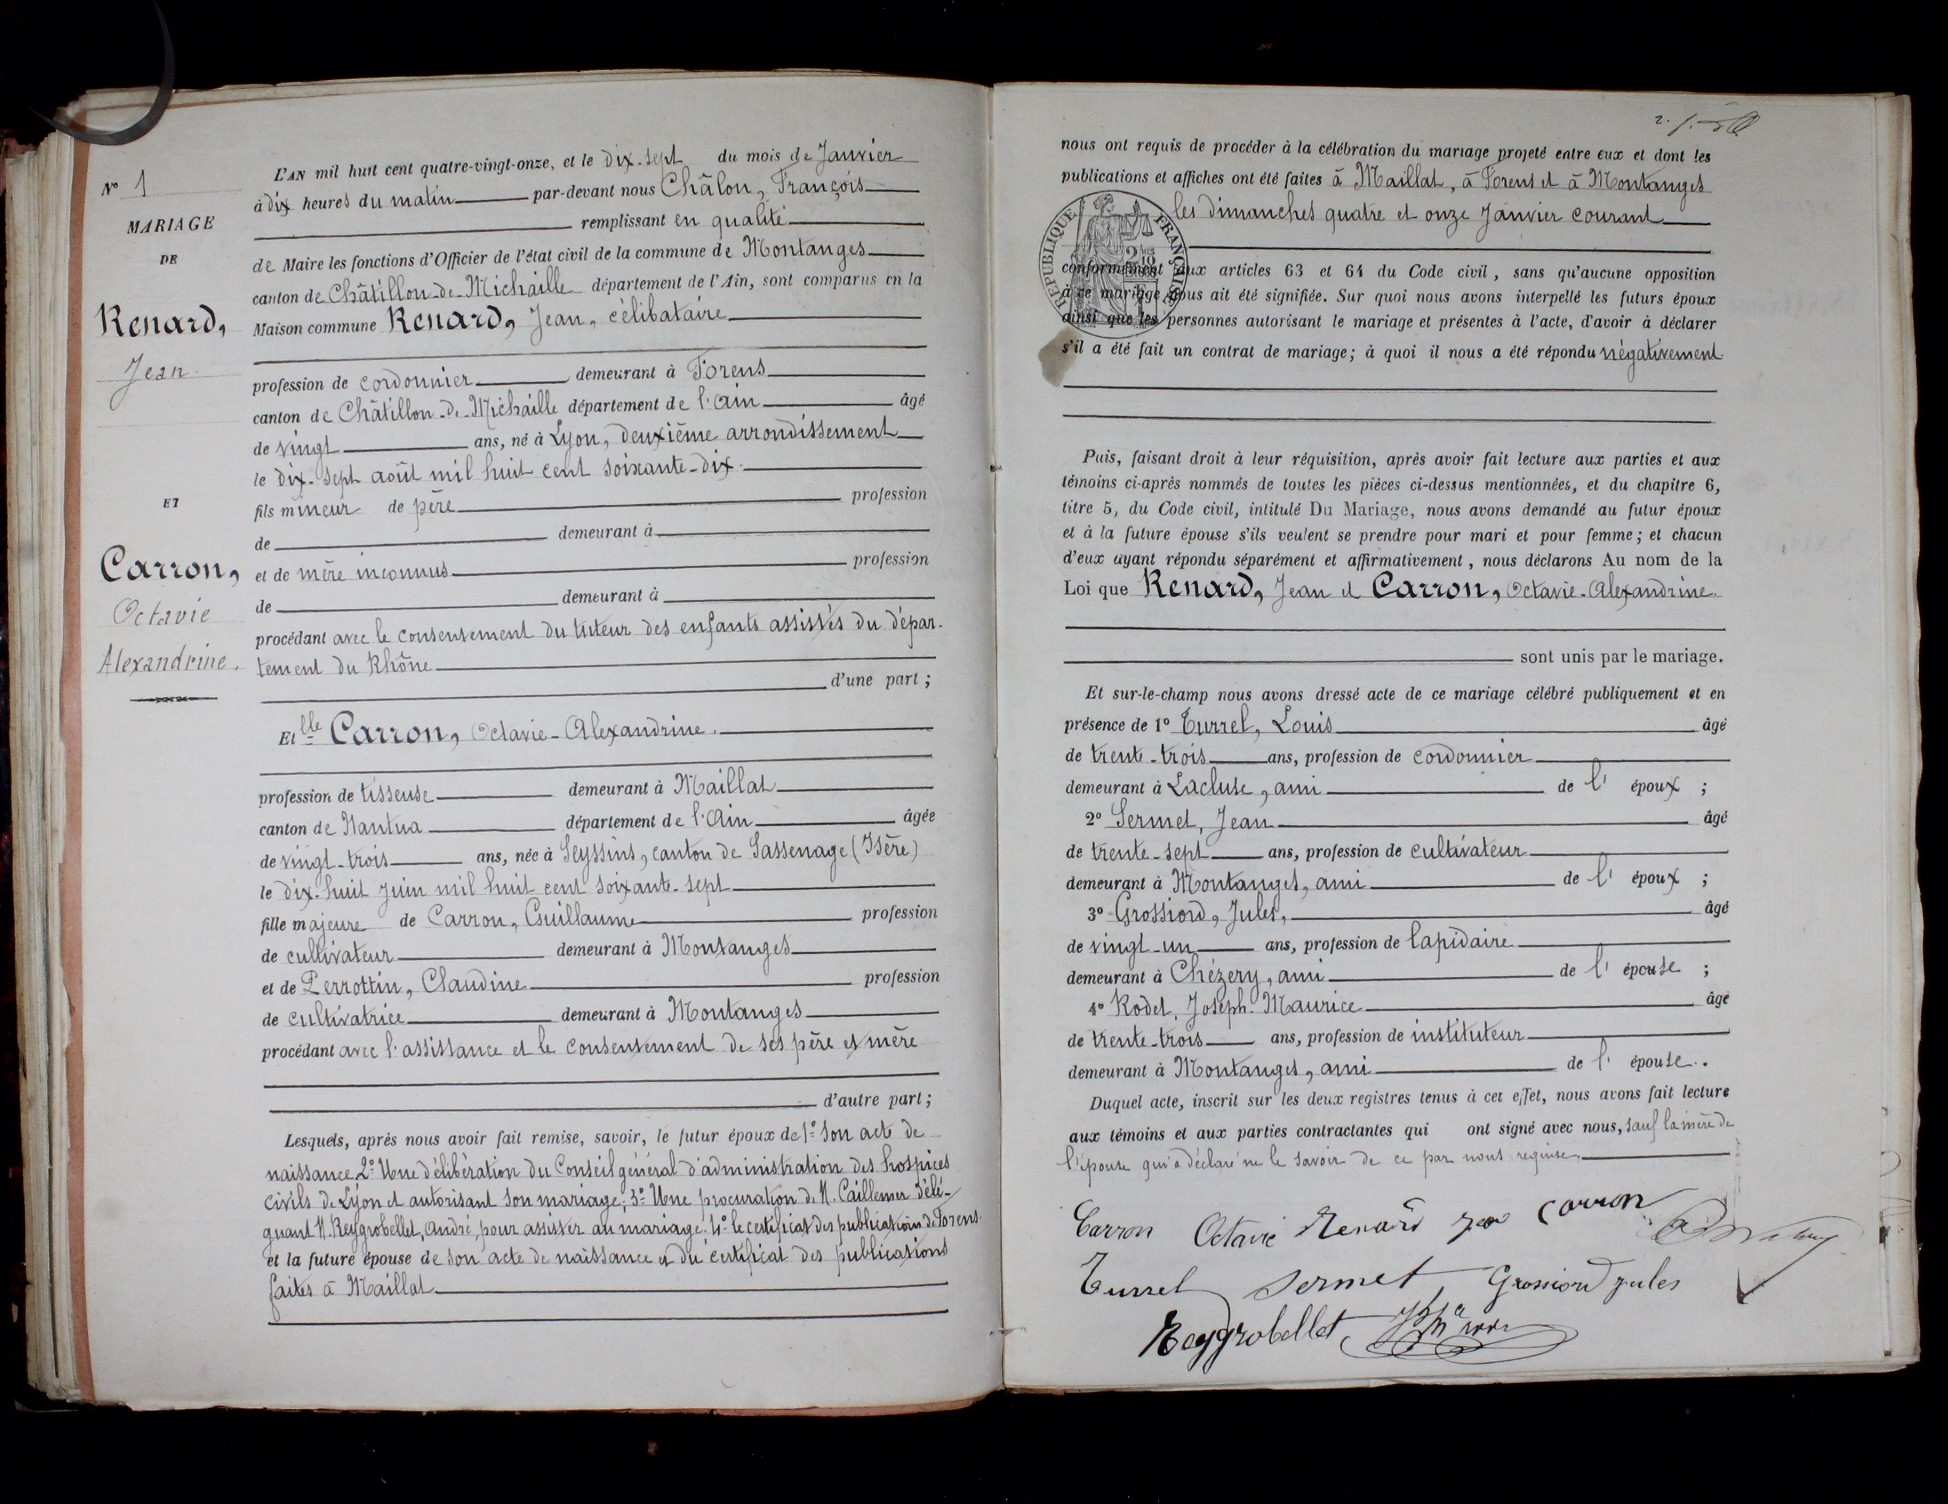 N° 1
MARIAGE
DE
Renard,
Jean
ET
Carron,
Octavie
Alexandrine.
L'AN mil huit cent quatre-vingt-onze, et le dix-sept du mois de Janvier
à dix heures du matin par-devant nous Châlon, François
remplissant en qualité
de Maire les fonctions d'Officier de l'état civil de la commune de Montanges
canton de Châtillon-de-Michaille département de l'Ain, sont comparus en la
Maison commune Renard, Jean, célibataire
profession de cordonnier demeurant à Forens
canton de Châtillon-de-Michaille département de l'Ain âgé
de vingt ans, né à Lyon, deuxième arrondissement
le dix-sept août mil huit cent soixante-dix.
fils mineur de père profession
de demeurant à
et de mère inconnus profession
de demeurant à
procédant avec le consentement du tuteur des enfants assistés du dépar-
tement du Rhône
d'une part ;
Et Dlle Carron, Octavie-Alexandrine.
profession de tisseuse demeurant à Maillat
canton de Nantua département de l'Ain âgée
de vingt-trois ans, née à Seyssins, canton de Sassenage (Isère)
le dix-huit juin mil huit cent soixante-sept
fille majeure de Carron, Guillaume profession
de cultivateur demeurant à Montanges
et de Perrottin, Claudine profession
de cultivatrice demeurant à Montanges
procédant avec l'assistance et le consentement de ses père et mère
d'autre part ;
Lesquels, après nous avoir fait remise, savoir, le futur époux de 1° son acte de
naissance 2° Une délibération du Conseil général d'administration des hospices
civils de Lyon et autorisant son mariage; 3° Une procuration de M. Caillemer délé-
guant M. Reygrobellet, André, pour assister au mariage. 4° le certificat des publications de Forens.
et la future épouse de son acte de naissance et du certificat des publications
faites à Maillat
nous ont requis de procéder à la célébration du mariage projeté entre eux et dont les
publications et affiches ont été faites à Maillat, à Forens et à Montanges
les dimanches quatre et onze Janvier courant
RÉPUBLIQUE FRANÇAISE
conformément aux articles 63 et 64 du Code civil, sans qu'aucune opposition
à ce mariage nous ait été signifiée. Sur quoi nous avons interpellé les futurs époux
ainsi que les personnes autorisant le mariage et présentes à l'acte, d'avoir à déclarer
s'il a été fait un contrat de mariage; à quoi il nous a été répondu négativement
Puis, faisant droit à leur réquisition, après avoir fait lecture aux parties et aux
témoins ci-après nommés de toutes les pièces ci-dessus mentionnées, et du chapitre 6,
titre 5, du Code civil, intitulé Du Mariage, nous avons demandé au futur époux
et à la future épouse s'ils veulent se prendre pour mari et pour femme; et chacun
d'eux ayant répondu séparément et affirmativement, nous déclarons Au nom de la
Loi que Renard, Jean et Carron, Octavie-Alexandrine.
sont unis par le mariage.
Et sur-le-champ nous avons dressé acte de ce mariage célébré publiquement et en
présence de 1° Turrel, Louis âgé
de trente-trois ans, profession de cordonnier
demeurant à Lacluse, ami de l' époux ;
2° Sermet, Jean âgé
de trente-sept ans, profession de cultivateur
demeurant à Montanges, ami de l' époux ;
3° Grossiord, Jules, âgé
de vingt-un ans, profession de lapidaire
demeurant à Chézery, ami de l' épouse ;
4° Rodet, Joseph-Maurice âgé
de trente-trois ans, profession de instituteur
demeurant à Montanges, ami de l' épouse.
Duquel acte, inscrit sur les deux registres tenus à cet effet, nous avons fait lecture
aux témoins et aux parties contractantes qui ont signé avec nous, sauf la mère de
l'épouse qui a déclaré ne le savoir de ce par nous requise.
Carron Octavie Renard Jean Carron
Turrel Sermet Grossiord Jules
Reygrobellet